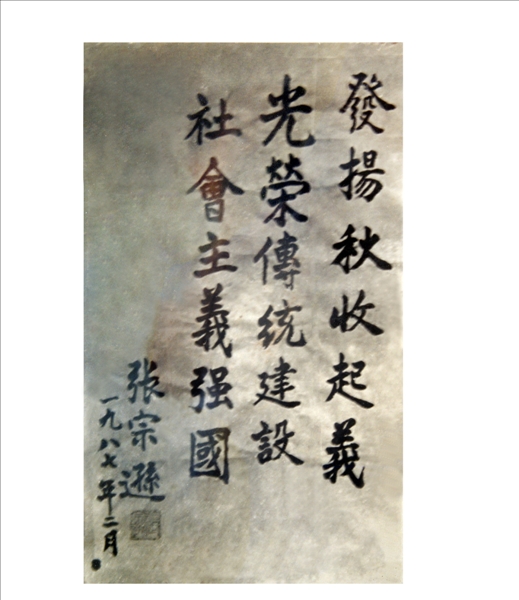 發揚秋收起義
光榮傳統建設
社會主義强國
張宗遜
一九八七年二月